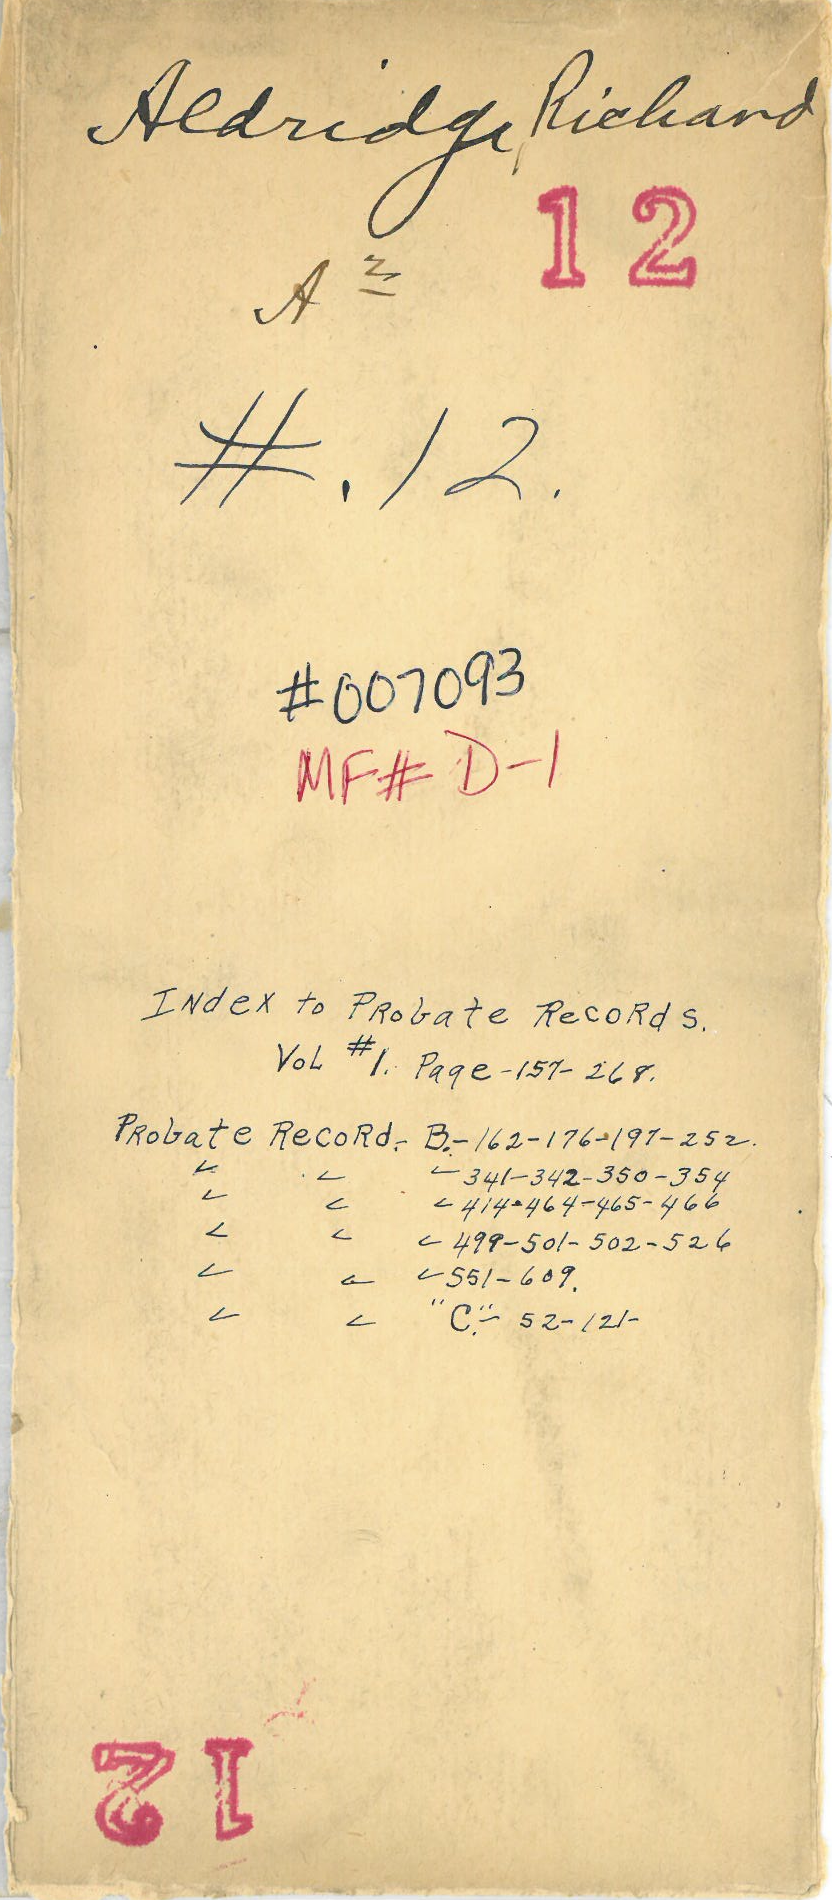 Aldridge, Richard
12
A 2
#.12.
#007093
MF# D-1
Index to Probate Records.
Vol #1. Page-157-268.
Probate Record.- B.-162-176-197-252.
" " "341-342-350-354
" " "414-464-465-466
" " "499-501-502-526
" " "551-609.
" " "C."- 52-121-
12